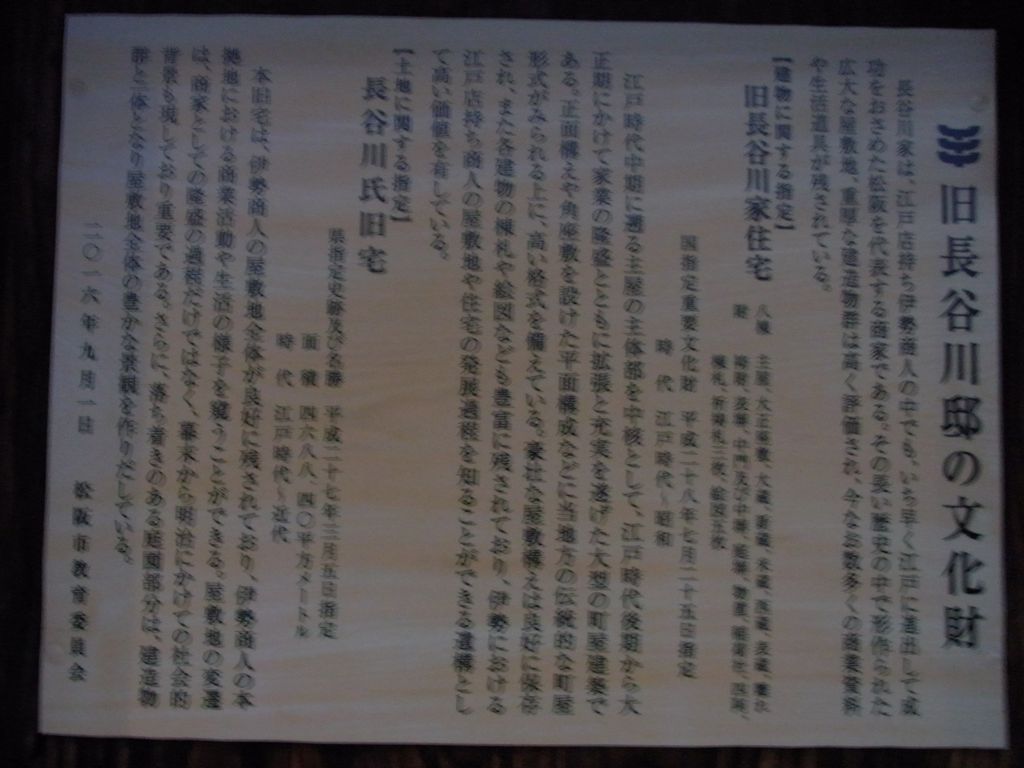 旧長谷川邸の文化財
長谷川家は、江戸店持ち伊勢商人の中でも、いち早く江戸に進出して成
功をおさめた松阪を代表する商家である。その長い歴史の中で形作られた
広大な屋敷地、重厚な建造物群は高く評価され、今なお数多くの商業資料
や生活道具が残されている。
【建物に関する指定】
旧長谷川家住宅
八棟 主屋、大正座敷、大蔵、新蔵、米蔵、西蔵、表蔵、
附
棟札、祈祷札三枚、絵図五枚
国指定重要文化財 平成二十八年七月二十五日指定
時 代 江戸時代～昭和
江戸時代中期に遡る主屋の主体部を中核として、江戸時代後期から大
正期にかけて家業の隆盛とともに拡張と充実を遂げた大型の町屋建築で
ある。正面構えや角座敷を設けた平面構成などに当地方の伝統的な町屋
形式がみられる上に、高い格式を備えている。豪壮な屋敷構えは良好に保存
され、また各建物の棟札や絵図なども豊富に残されており、伊勢における
江戸店持ち商人の屋敷地や住宅の発展過程を知ることができる遺構とし
て高い価値を有している。
【土地に関する指定】
長谷川氏旧宅
県指定史跡及び名勝 平成二十七年三月五日指定
面 積 四六八八、四〇平方メートル
時 代 江戸時代～近代
本旧宅は、伊勢商人の屋敷地全体が良好に残されており、伊勢商人の本
拠地における商業活動や生活の様子を窺うことができる。屋敷地の変遷
は、商家としての隆盛の過程だけではなく、幕末から明治にかけての社会的
背景も映しており重要である。さらに、落ち着きのある庭園部分は、建造物
群と一体となり屋敷地全体の豊かな景観を作りだしている。
二〇一六年九月一日 松阪市教育委員会